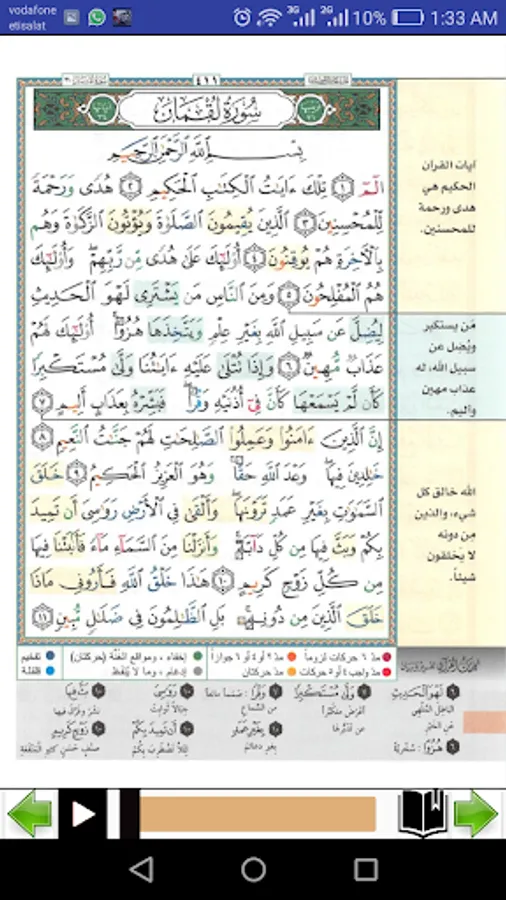 vodafone
etisalat
3G
2G
10%
1:33 AM
٤١١
سُورَةُ لُقۡمَانَ
بِسۡمِ ٱللَّهِ ٱلرَّحۡمَٰنِ ٱلرَّحِيمِ
الٓمٓ ١ تِلۡكَ ءَايَٰتُ ٱلۡكِتَٰبِ ٱلۡحَكِيمِ ٢ هُدٗى وَرَحۡمَةٗ
لِّلۡمُحۡسِنِينَ ٣ ٱلَّذِينَ يُقِيمُونَ ٱلصَّلَوٰةَ وَيُؤۡتُونَ ٱلزَّكَوٰةَ وَهُم
بِٱلۡأٓخِرَةِ هُمۡ يُوقِنُونَ ٤ أُوْلَٰٓئِكَ عَلَىٰ هُدٗى مِّن رَّبِّهِمۡۖ وَأُوْلَٰٓئِكَ
هُمُ ٱلۡمُفۡلِحُونَ ٥ وَمِنَ ٱلنَّاسِ مَن يَشۡتَرِي لَهۡوَ ٱلۡحَدِيثِ
لِيُضِلَّ عَن سَبِيلِ ٱللَّهِ بِغَيۡرِ عِلۡمٖ وَيَتَّخِذَهَا هُزُوًاۚ أُوْلَٰٓئِكَ لَهُمۡ
عَذَابٞ مُّهِينٞ ٦ وَإِذَا تُتۡلَىٰ عَلَيۡهِ ءَايَٰتُنَا وَلَّىٰ مُسۡتَكۡبِرٗا
كَأَن لَّمۡ يَسۡمَعۡهَا كَأَنَّ فِيٓ أُذُنَيۡهِ وَقۡرٗاۖ فَبَشِّرۡهُ بِعَذَابٍ أَلِيمٍ ٧
إِنَّ ٱلَّذِينَ ءَامَنُواْ وَعَمِلُواْ ٱلصَّٰلِحَٰتِ لَهُمۡ جَنَّٰتُ ٱلنَّعِيمِ ٨
خَٰلِدِينَ فِيهَاۖ وَعۡدَ ٱللَّهِ حَقّٗاۚ وَهُوَ ٱلۡعَزِيزُ ٱلۡحَكِيمُ ٩ خَلَقَ
ٱلسَّمَٰوَٰتِ بِغَيۡرِ عَمَدٖ تَرَوۡنَهَاۖ وَأَلۡقَىٰ فِي ٱلۡأَرۡضِ رَوَٰسِيَ أَن تَمِيدَ
بِكُمۡ وَبَثَّ فِيهَا مِن كُلِّ دَآبَّةٖۚ وَأَنزَلۡنَا مِنَ ٱلسَّمَآءِ مَآءٗ فَأَنۢبَتۡنَا فِيهَا
مِن كُلِّ زَوۡجٖ كَرِيمٍ ١٠ هَٰذَا خَلۡقُ ٱللَّهِ فَأَرُونِي مَاذَا
خَلَقَ ٱلَّذِينَ مِن دُونِهِۦۚ بَلِ ٱلظَّٰلِمُونَ فِي ضَلَٰلٖ مُّبِينٖ ١١
آيات القرآن
الحكيم هي
هدى ورحمة
للمحسنين.
مَن يستكبر
ويُضل عن
سبيل الله، له
عذاب مهين
وأليم.
الله خالق كل
شيء، والذين
مِن دونه
لا يَخلقون
شيئاً.
مدّ ٦ حركات لزوماً
مدّ ٢ أو ٤ أو ٦ جوازاً
إخفاء، ومواقع الغُنَّة (حركتان)
تفخيم
مدّ واجب ٤ أو ٥ حركات
مدّ حركتان
إدغام، وما لا يُلفَظ
قلقلة
لَهْوَ الْحَدِيثِ
الباطل المُلْهي
عن الخير
هُزُوًا : سُخْرِيَّةً
وَلَّىٰ مُسْتَكْبِرًا
أعرض متكبّراً
عن تدبُّرها
وَقْرًا : صَمَماً مانعاً
من السَّماع
بِغَيْرِ عَمَدٍ
بغير دعائم
رَوَاسِيَ
جبالاً ثوابت
أَن تَمِيدَ بِكُمْ
لئلا تضطرب بكم
بَثَّ فِيهَا
نشر وفرَّق فيها
زَوْجٍ كَرِيمٍ
صنف حسن كثير المنفعة